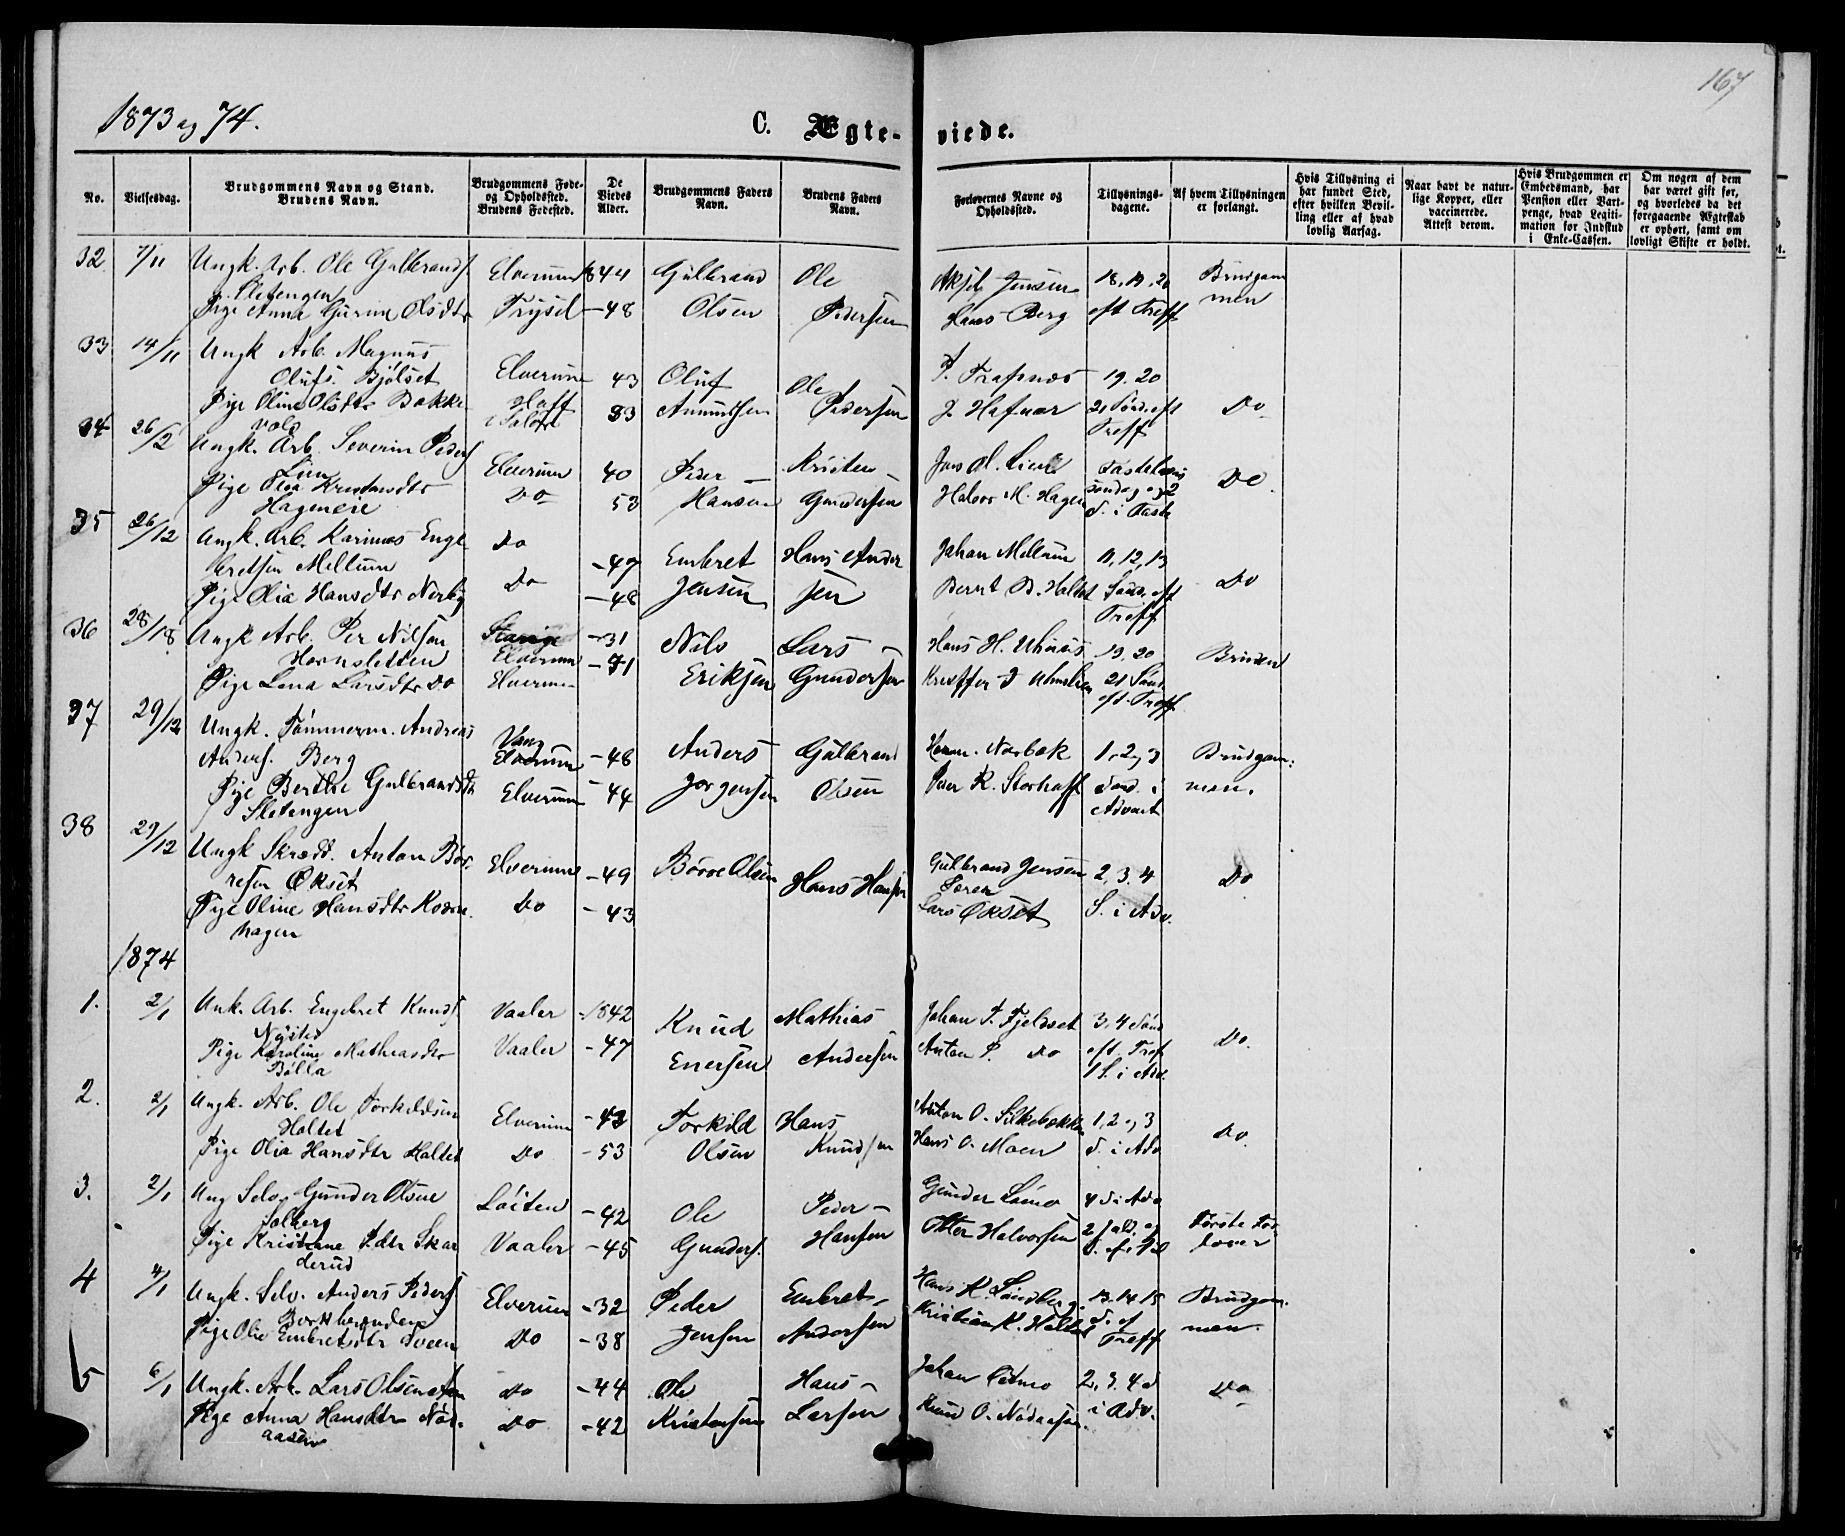 167
1873 og 74.
C. Ægte-viede.
No.
Vielsesdag.
Brudgommens Navn og Stand.
Brudens Navn.
Brudgommens Føde-
og Opholdssted.
Brudens Fødested.
De
Viedes
Alder.
Brudgommens Faders
Navn.
Brudens Faders
Navn.
Forlovernes Navne og
Opholdssted.
Tillysnings-
dagene.
Af hvem Tillysningen
er forlangt.
Hvis Tillysning ei
har fundet Sted,
efter hvilken Bevil-
ling eller af hvad
lovlig Aarsag.
Naar havt de natur-
lige Kopper, eller
vaccinerede.
Attest derom.
Hvis Brudgommen er
Embedsmand, har
Pension eller Vart-
penge, hvad Legiti-
mation for Indskud
i Enke-Cassen.
Om nogen af dem
har været gift før,
og hvorledes da det
foregaaende Ægteskab
er ophørt, samt om
lovligt Skifte er holdt.
32 7/11 Ungk. Arb. Ole Gulbrands. Elverum 1844 Gulbrand Ole Aksel Jensen 18, 19, 20 Brudgom
Sletengen
Pige Anna Gurine Olsdtr Trysil -48 Olsen Pedersen Hans Berg eft Treff men
33 14/11 Ungk Arb. Magnus
Olufs. Bjølset Elverum 43 Oluf Ole 19. 20
Pige Oline Olsdtr Bakke 53 Amundsen Pedersen 21 Sønd. eft Do
vold Treff
34 26/12 Ungk. Arb. Severin Peders
Lien Elverum 40 Peder Kristen Fastelavns
Pige Olea Kristensdtr Do 53 Hansen Gundersen Halvor M. Hagen søndag og 2 Do
Hagenese S. i Faste
35 26/12 Ungk. Arb. Karinus Enge Do
bretsen Mellum -47 Embret Hans Ander Johan Mellum 11, 12, 13
Pige Olia Hansdtr Nerby Do -48 Jensen sen Bernt B. Haltet Sønd. eft Do
Treff
36 28/18 Ungk Arb. Per Nilsen Stange -31 Nils Lars Hans H. 19, 20 Bruden
Hornsletten Elverum
Pige Lena Larsdtr Do Elverum Eriksen Gundersen 21 Sønd
eft. Treff
37 29/12 Ungk. Tømmerm. Andreas Vang
Anders. Berg Elverum -48 Anders Gulbrand Herm. Norbak 1, 2, 3 Brudgom:
Pige Berthe Gulbrandsdtr Elverum -44 Jørgensen Olsen Peer K. Storhoff Sønd. i men.
Sletengen Advent
38 29/12 Ungk Skrædd. Anton Bør Elverum -49 Børre Olsen Hans Hansen Gulbrand Jensen 2, 3, 4 Do
resen Økset
Pige Oline Hansdtr Kværn Do -43 Lars Økset S. i Adv.
hagen
1874
1. 2/1 Unk. Arb. Engebret Knuds. Vaaler -1842 Knud Mathias Johan P. Fjeldset 3, 4 Sønd
Nysted
Pige Karoline Mathiasdtr Vaaler -47 Enersen Andersen Anton P. Do eft. Tref Do.
Bølla 1 S. i Adv.
2. 2/1 Ungk. Arb. Ole Torkildsen Elverum -43 Torkild Hans Anton O. Silkebækken 1, 2 og 3
Haltet
Pige Olia Hansdtr Haltet Do -53 Olsen Knudsen Hans O. Moen S. i Adv Do.
3. 2/1 Ung Selv. Gunder Olsen Løiten -42 Ole Peder Gunder 4 S i Adv
Solberg
Pige Kristiane Pdtr Skar Vaaler -45 Gunders. Hansen Otter Halvorsen Første For
derud lover
4 4/1 Ungk. Selv. Anders Peders Elverum -32 Peder Embret Hans K. Lundberg 13. 14. 15 Brudgom.
Pige Olia Embretsdtr Sveen Do -38 Jensen Andersen Kristian K. Haltet S. ef Treff men.
5 6/1 Ungk. Arb. Lars Olsen Do -44 Ole Hans Johan 2, 3, 4 S Do
Pige Anna Hansdtr Nød- Do -42 Kristensen Larsen Knud O. Nødaasen i Adv.
aasen